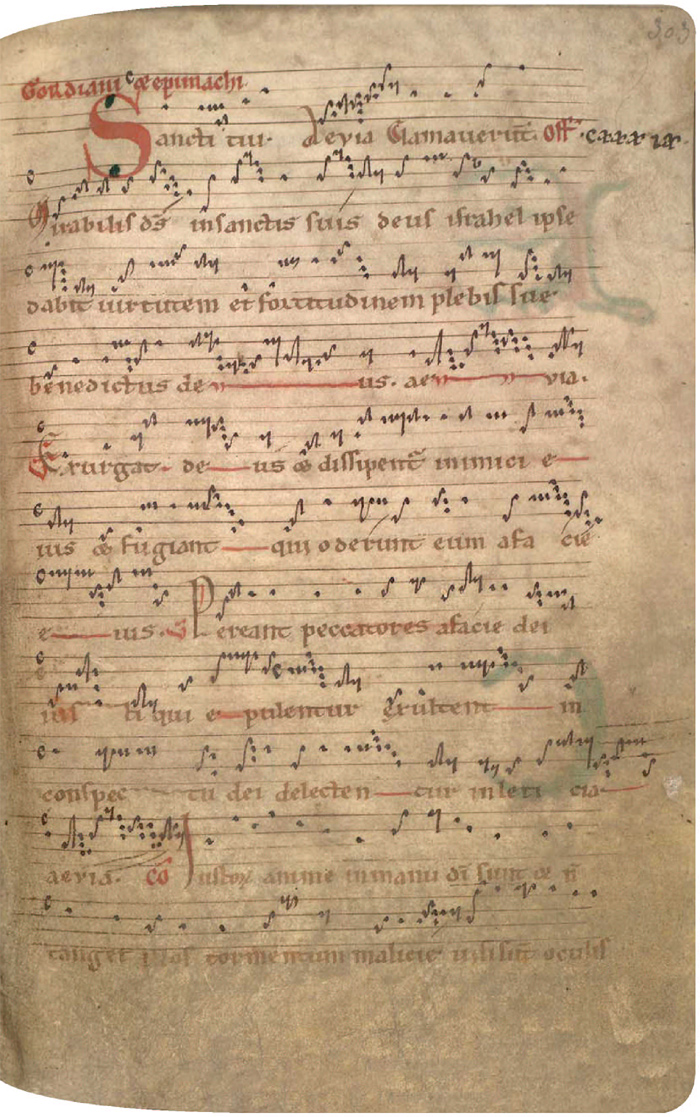 303
Gordiani et epimachi
Sancti tui. Aevia Clamaverūt. Off.
Mirabilis ds̄ insanctis suis deus israhel ipse
dabit uirtutem et fortitudinem plebis sue
benedictus de us. ae via.
Exurgat de us et dissipent inimici e
ius et fugiant qui oderunt eum afa cie
e ius. Pereant peccatores afacie dei
ius ti qui e pulentur Exultent in
conspec tu dei delecten tur inleti cia
aevia. Cō Iustoꝝ anime inmanu dī sunt et n̄
tanget illos tormentum malicie uisi sūt oculis